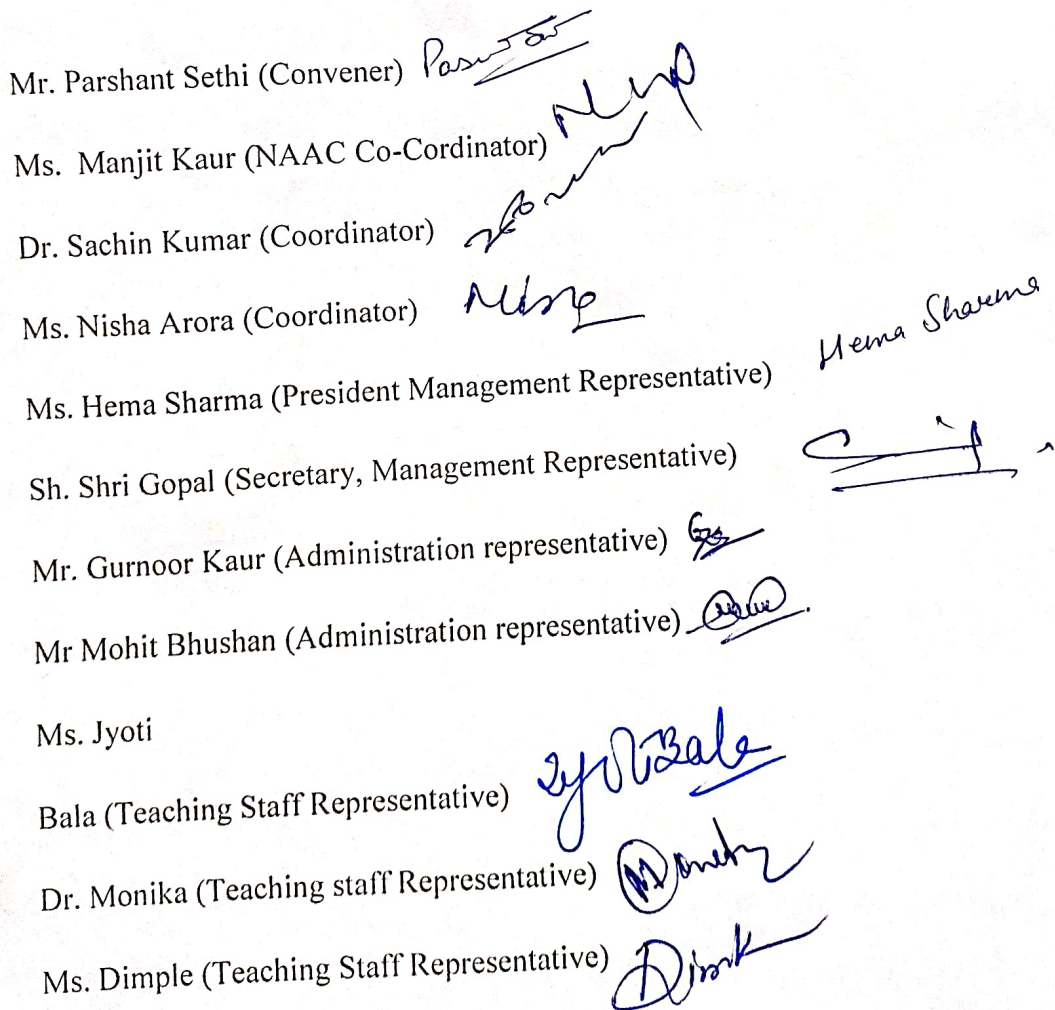 Mr. Parshant Sethi (Convener)
Ms. Manjit Kaur (NAAC Co-Cordinator)
Dr. Sachin Kumar (Coordinator)
Ms. Nisha Arora (Coordinator)
Ms. Hema Sharma (President Management Representative) Hema Sharma
Sh. Shri Gopal (Secretary, Management Representative)
Mr. Gurnoor Kaur (Administration representative)
Mr Mohit Bhushan (Administration representative)
Ms. Jyoti
Bala (Teaching Staff Representative) Jyoti Bala
Dr. Monika (Teaching staff Representative)
Ms. Dimple (Teaching Staff Representative)